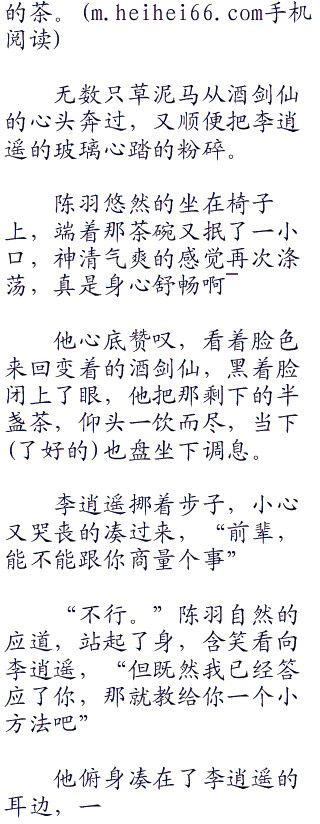 的茶。(m.heihei66.com手机
阅读)
无数只草泥马从酒剑仙
的心头奔过，又顺便把李逍
遥的玻璃心踏的粉碎。
陈羽悠然的坐在椅子
上，端着那茶碗又抿了一小
口，神清气爽的感觉再次涤
荡，真是身心舒畅啊¯
他心底赞叹，看着脸色
来回变着的酒剑仙，黑着脸
闭上了眼，他把那剩下的半
盏茶，仰头一饮而尽，当下
(了好的)也盘坐下调息。
李逍遥挪着步子，小心
又哭丧的凑过来，“前辈，
能不能跟你商量个事”
“不行。”陈羽自然的
应道，站起了身，含笑看向
李逍遥，“但既然我已经答
应了你，那就教给你一个小
方法吧”
他俯身凑在了李逍遥的
耳边，一